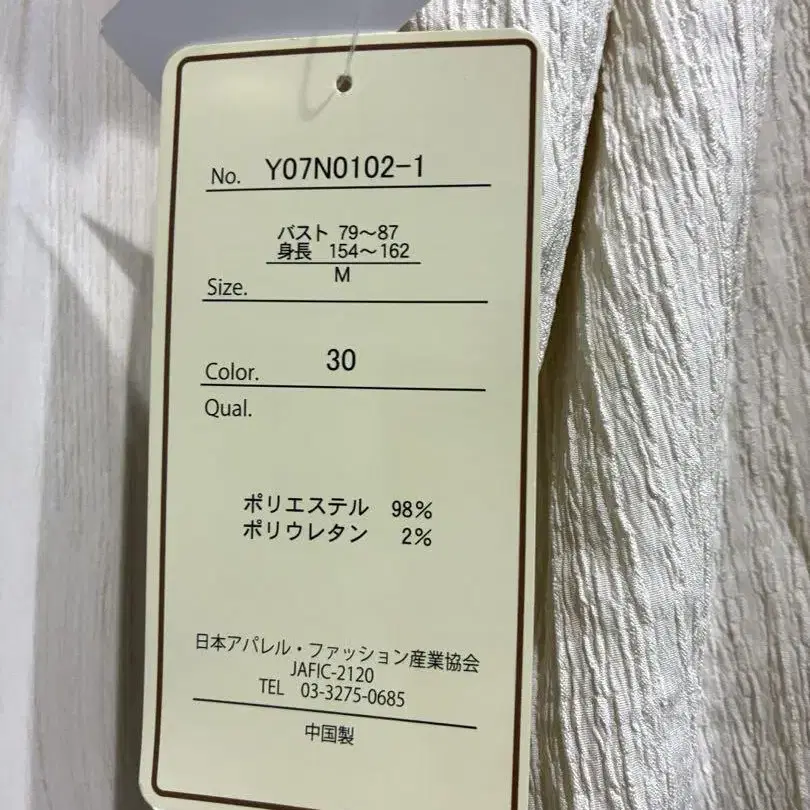 No. Y07N0102-1
バスト 79～87
身長 154～162
M
Size.
Color. 30
Qual.
ポリエステル 98%
ポリウレタン 2%
日本アパレル・ファッション産業協会
JAFIC-2120
TEL 03-3275-0685
中国製